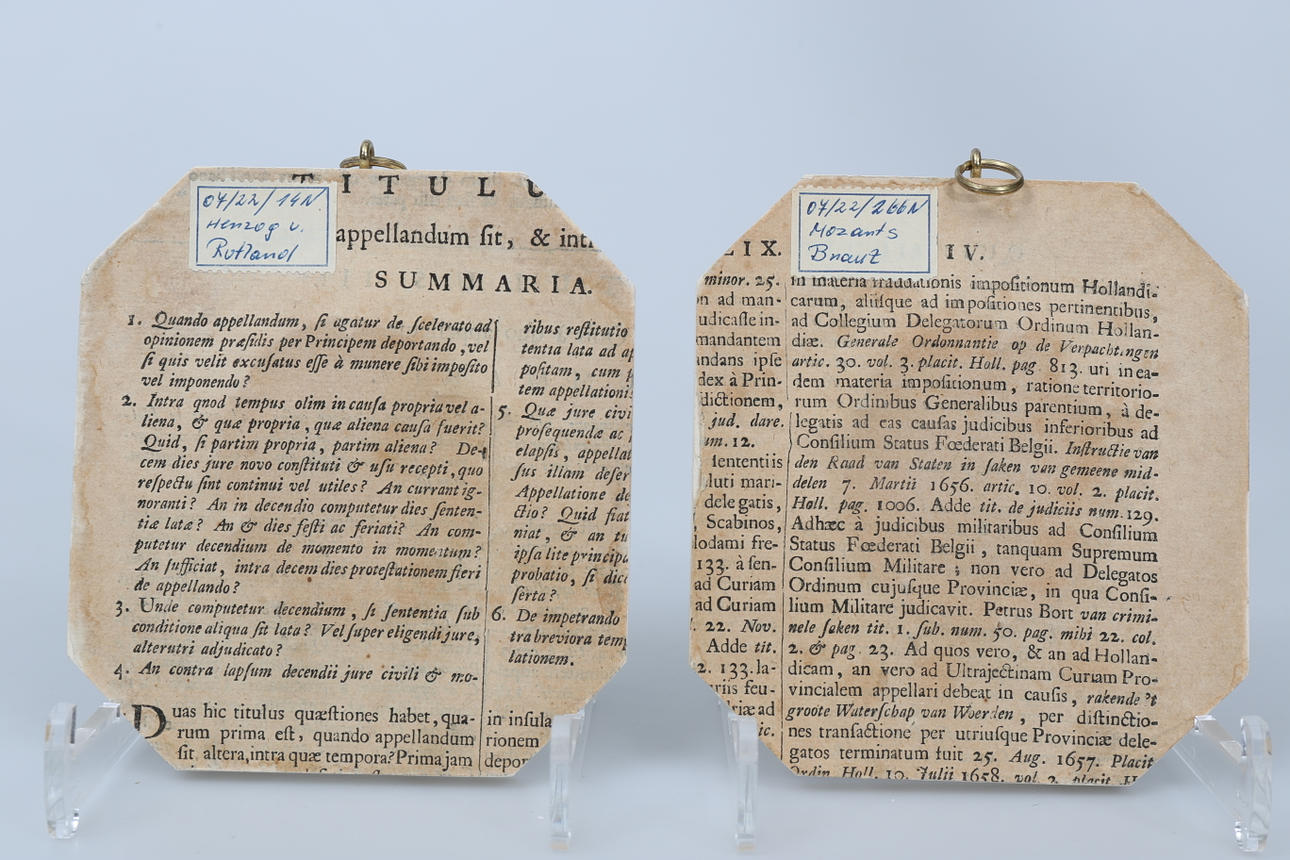 07/22/14N
Herzog v.
Rutland
TITULU
appellandum sit, & int
SUMMARIA.
1. Quando appellandum, si agatur de scelerato ad
opinionem præsidis per Principem deportando, vel
si quis velit excusatus esse à munere sibi imposito
vel imponendo?
2. Intra quod tempus olim in causa propria vel a-
liena, & quæ propria, quæ aliena causa fuerit?
Quid, si partim propria, partim aliena? De-
cem dies jure novo constituti & usu recepti, quo
respectu sint continui vel utiles? An currant ig-
noranti? An in decendio computetur dies senten-
tiæ latæ? An & dies festi ac feriati? An com-
putetur decendium de momento in momentum?
An sufficiat, intra decem dies protestationem fieri
de appellando?
3. Unde computetur decendium, si sententia sub
conditione aliqua sit lata? Vel super eligendi jure,
alterutri adjudicato?
4. An contra lapsum decendii jure civili & mo-
ribus restitutio
tentia lata ad ap
positam, cum p
tem appellationis
5. Quæ jure civi
prosequendæ ac
elapsis, appellat
sus illam deser
Appellatione de
ctio? Quid fiat
niat, & an tu
ipsa lite principa
probatio, si dica
serta?
6. De impetrando
tra breviora temp
lationem.
Duas hic titulus quæstiones habet, qua-
rum prima est, quando appellandum
sit, altera, intra quæ tempora? Prima jam
in insula
rionem
depor
07/22/266N
Mozarts
Braut
LIX.
IV.
minor. 25.
n ad man-
udicasse in-
mandantem
andans ipse
dex à Prin-
dictionem,
jud. dare.
um. 12.
sententiis
luti mari-
delegatis,
Scabinos,
lodami fre-
133. à sen-
ad Curiam
ad Curiam
. 22. Nov.
Adde tit.
2. 133. la-
riis feu-
riæ ad
ic.
In materia fraudationis impositionum Hollandi-
carum, aliisque ad impositiones pertinentibus,
ad Collegium Delegatorum Ordinum Hollan-
diæ. Generale Ordonnantie op de Verpachtingen
artic. 30. vol. 3. placit. Holl. pag. 813. uti in ea-
dem materia impositionum, ratione territorio-
rum Ordinibus Generalibus parentium, à de-
legatis ad eas causas judicibus inferioribus ad
Consilium Status Fœderati Belgii. Instructie van
den Raad van Staten in saken van gemeene mid-
delen 7. Martii 1656. artic. 10. vol. 2. placit.
Holl. pag. 1006. Adde tit. de judiciis num. 129.
Adhæc à judicibus militaribus ad Consilium
Status Fœderati Belgii, tanquam Supremum
Consilium Militare; non vero ad Delegatos
Ordinum cujusque Provinciæ, in qua Consi-
lium Militare judicavit. Petrus Bort van crimi-
nele saken tit. 1. sub. num. 50. pag. mihi 22. col.
2. & pag. 23. Ad quos vero, & an ad Hollan-
dicam, an vero ad Ultrajectinam Curiam Pro-
vincialem appellari debeat in causis, rakende 't
groote Waterschap van Woerden, per distinctio-
nes transactione per utriusque Provinciæ dele-
gatos terminatum fuit 25. Aug. 1657. Placit
Ordin. Holl. 10. Julii 1658. vol. 2. placit. H